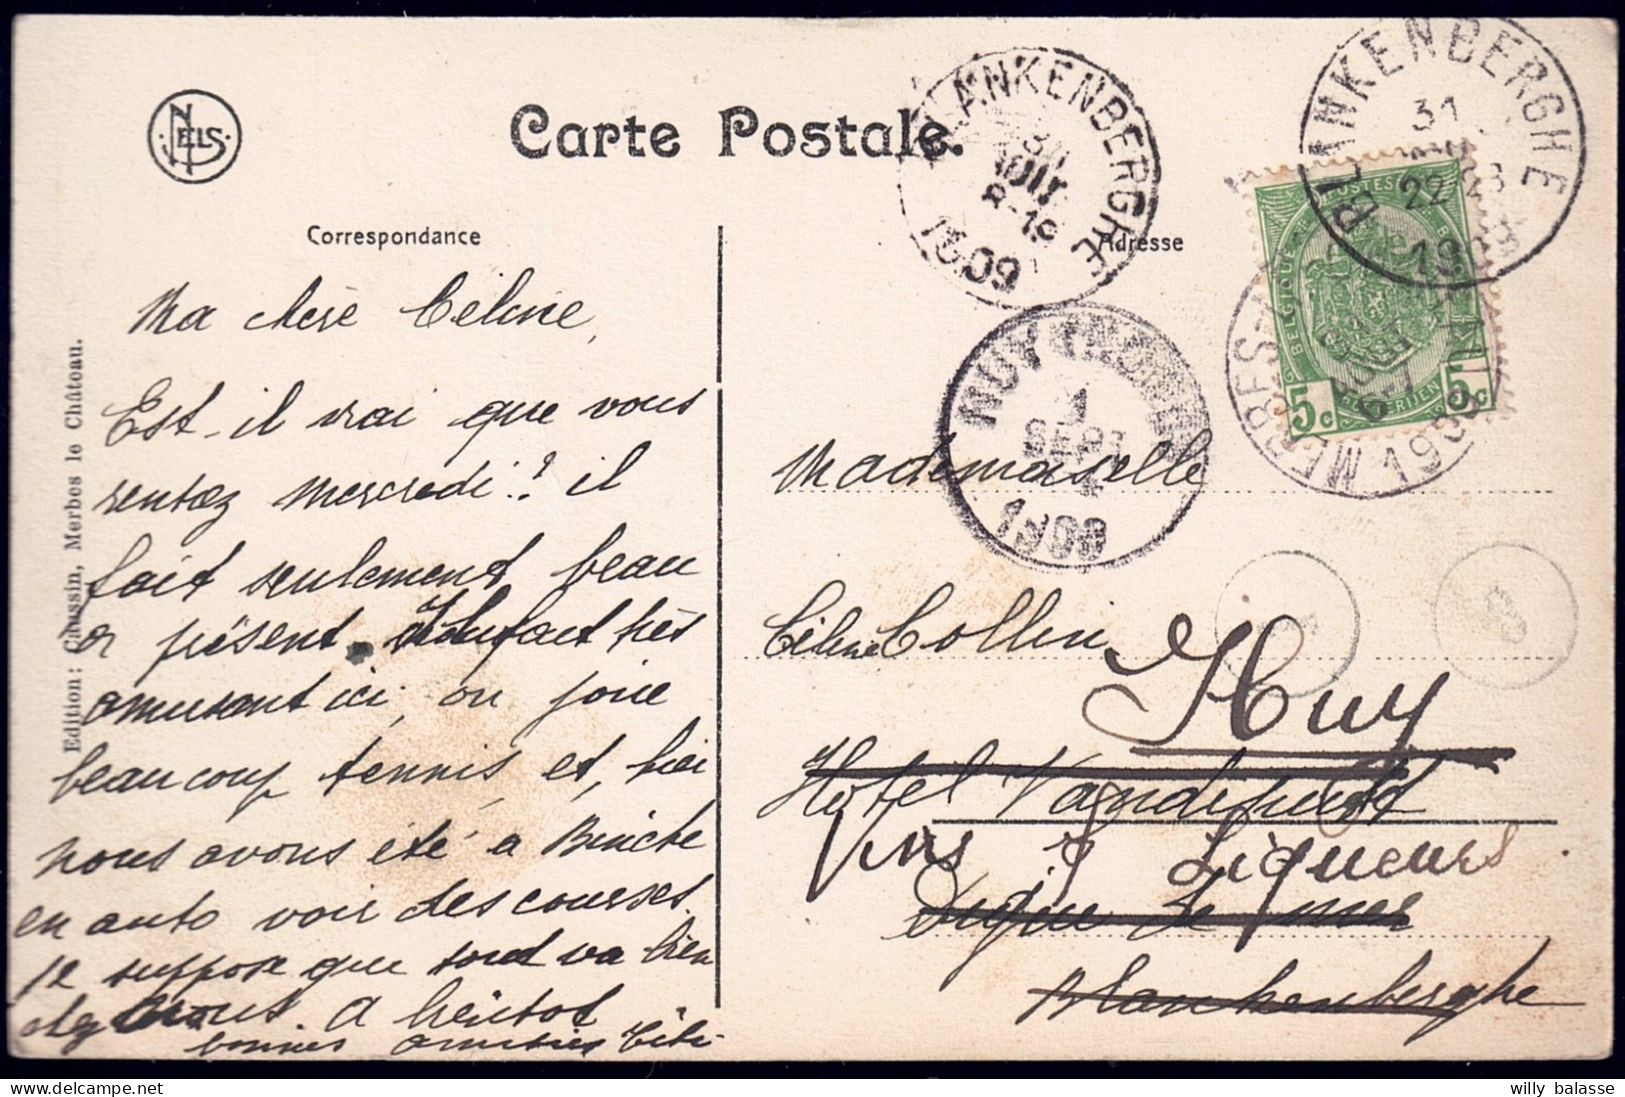 NELS
Carte Postale.
Correspondance
Adresse
Edition: Caussin, Merbes le Château.
BLANKENBERGHE
1909
BLANKENBERGHE
31
22-23
1909
HUY
1
SEPT
1909
MERBES-
1909
BELGIQUE
POSTES
5c 5c
Ma chère Céline,
Est-il vrai que vous
rentez mercredi? il
fait seulement beau
à présent. Il fait très
amusant ici, on joue
beaucoup tennis, et, hier
nous avons été à Binche
en auto voir des courses.
je suppose que tout va bien
chez vous. A bientôt
bonnes amitiés
Mademoiselle
Céline Collin
Huy
Hotel
Vins & Liqueurs
Digue de mer
Blankenberghe
willy balasse